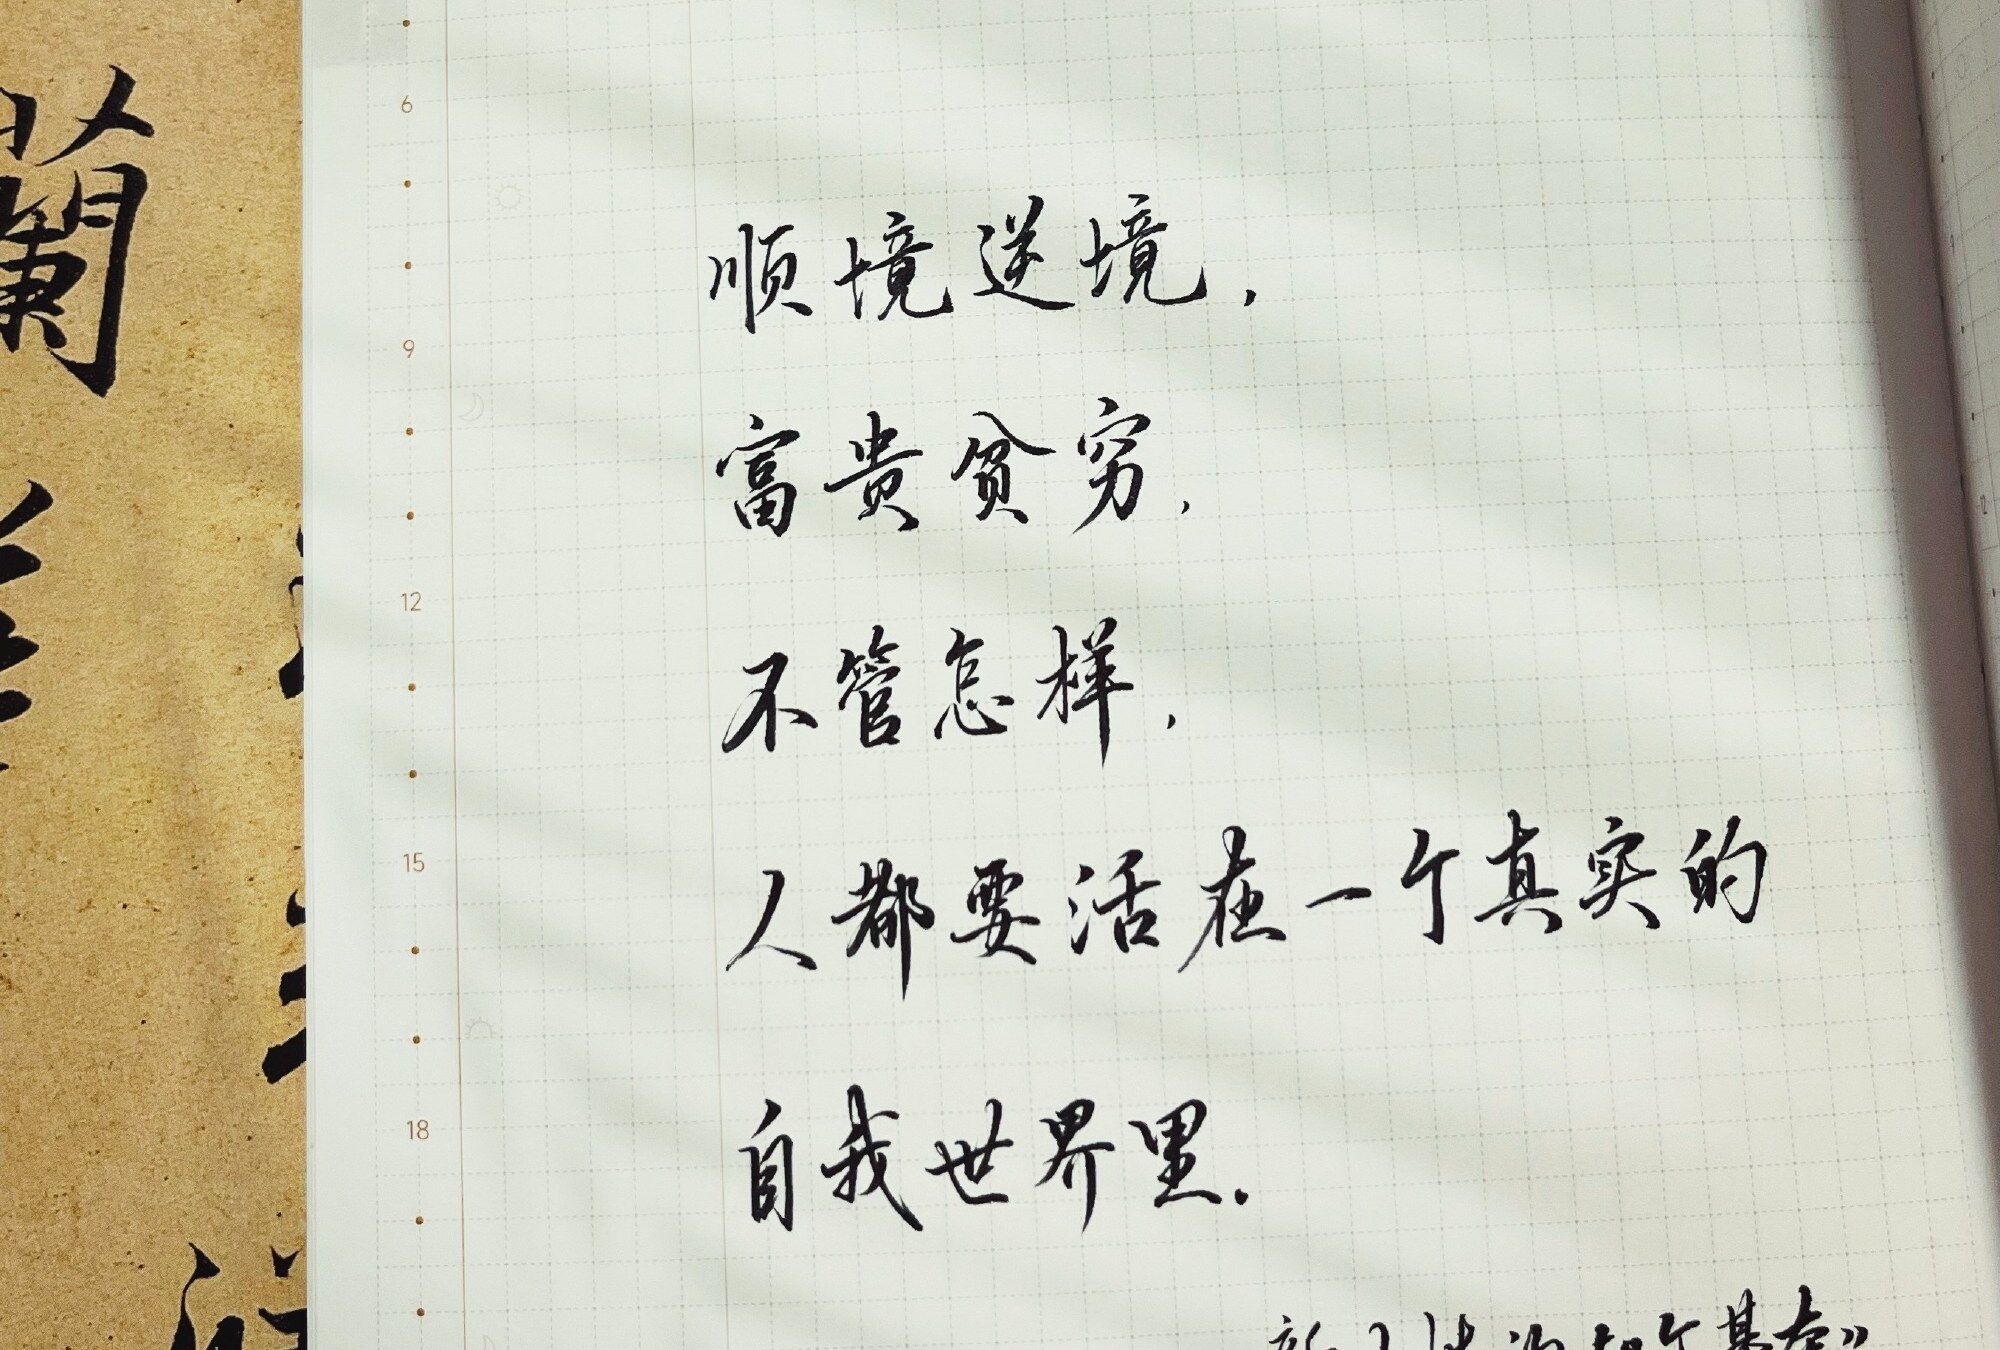 顺境逆境，
富贵贫穷，
不管怎样，
人都要活在一个真实的
自我世界里.
蘭
6
9
12
15
18